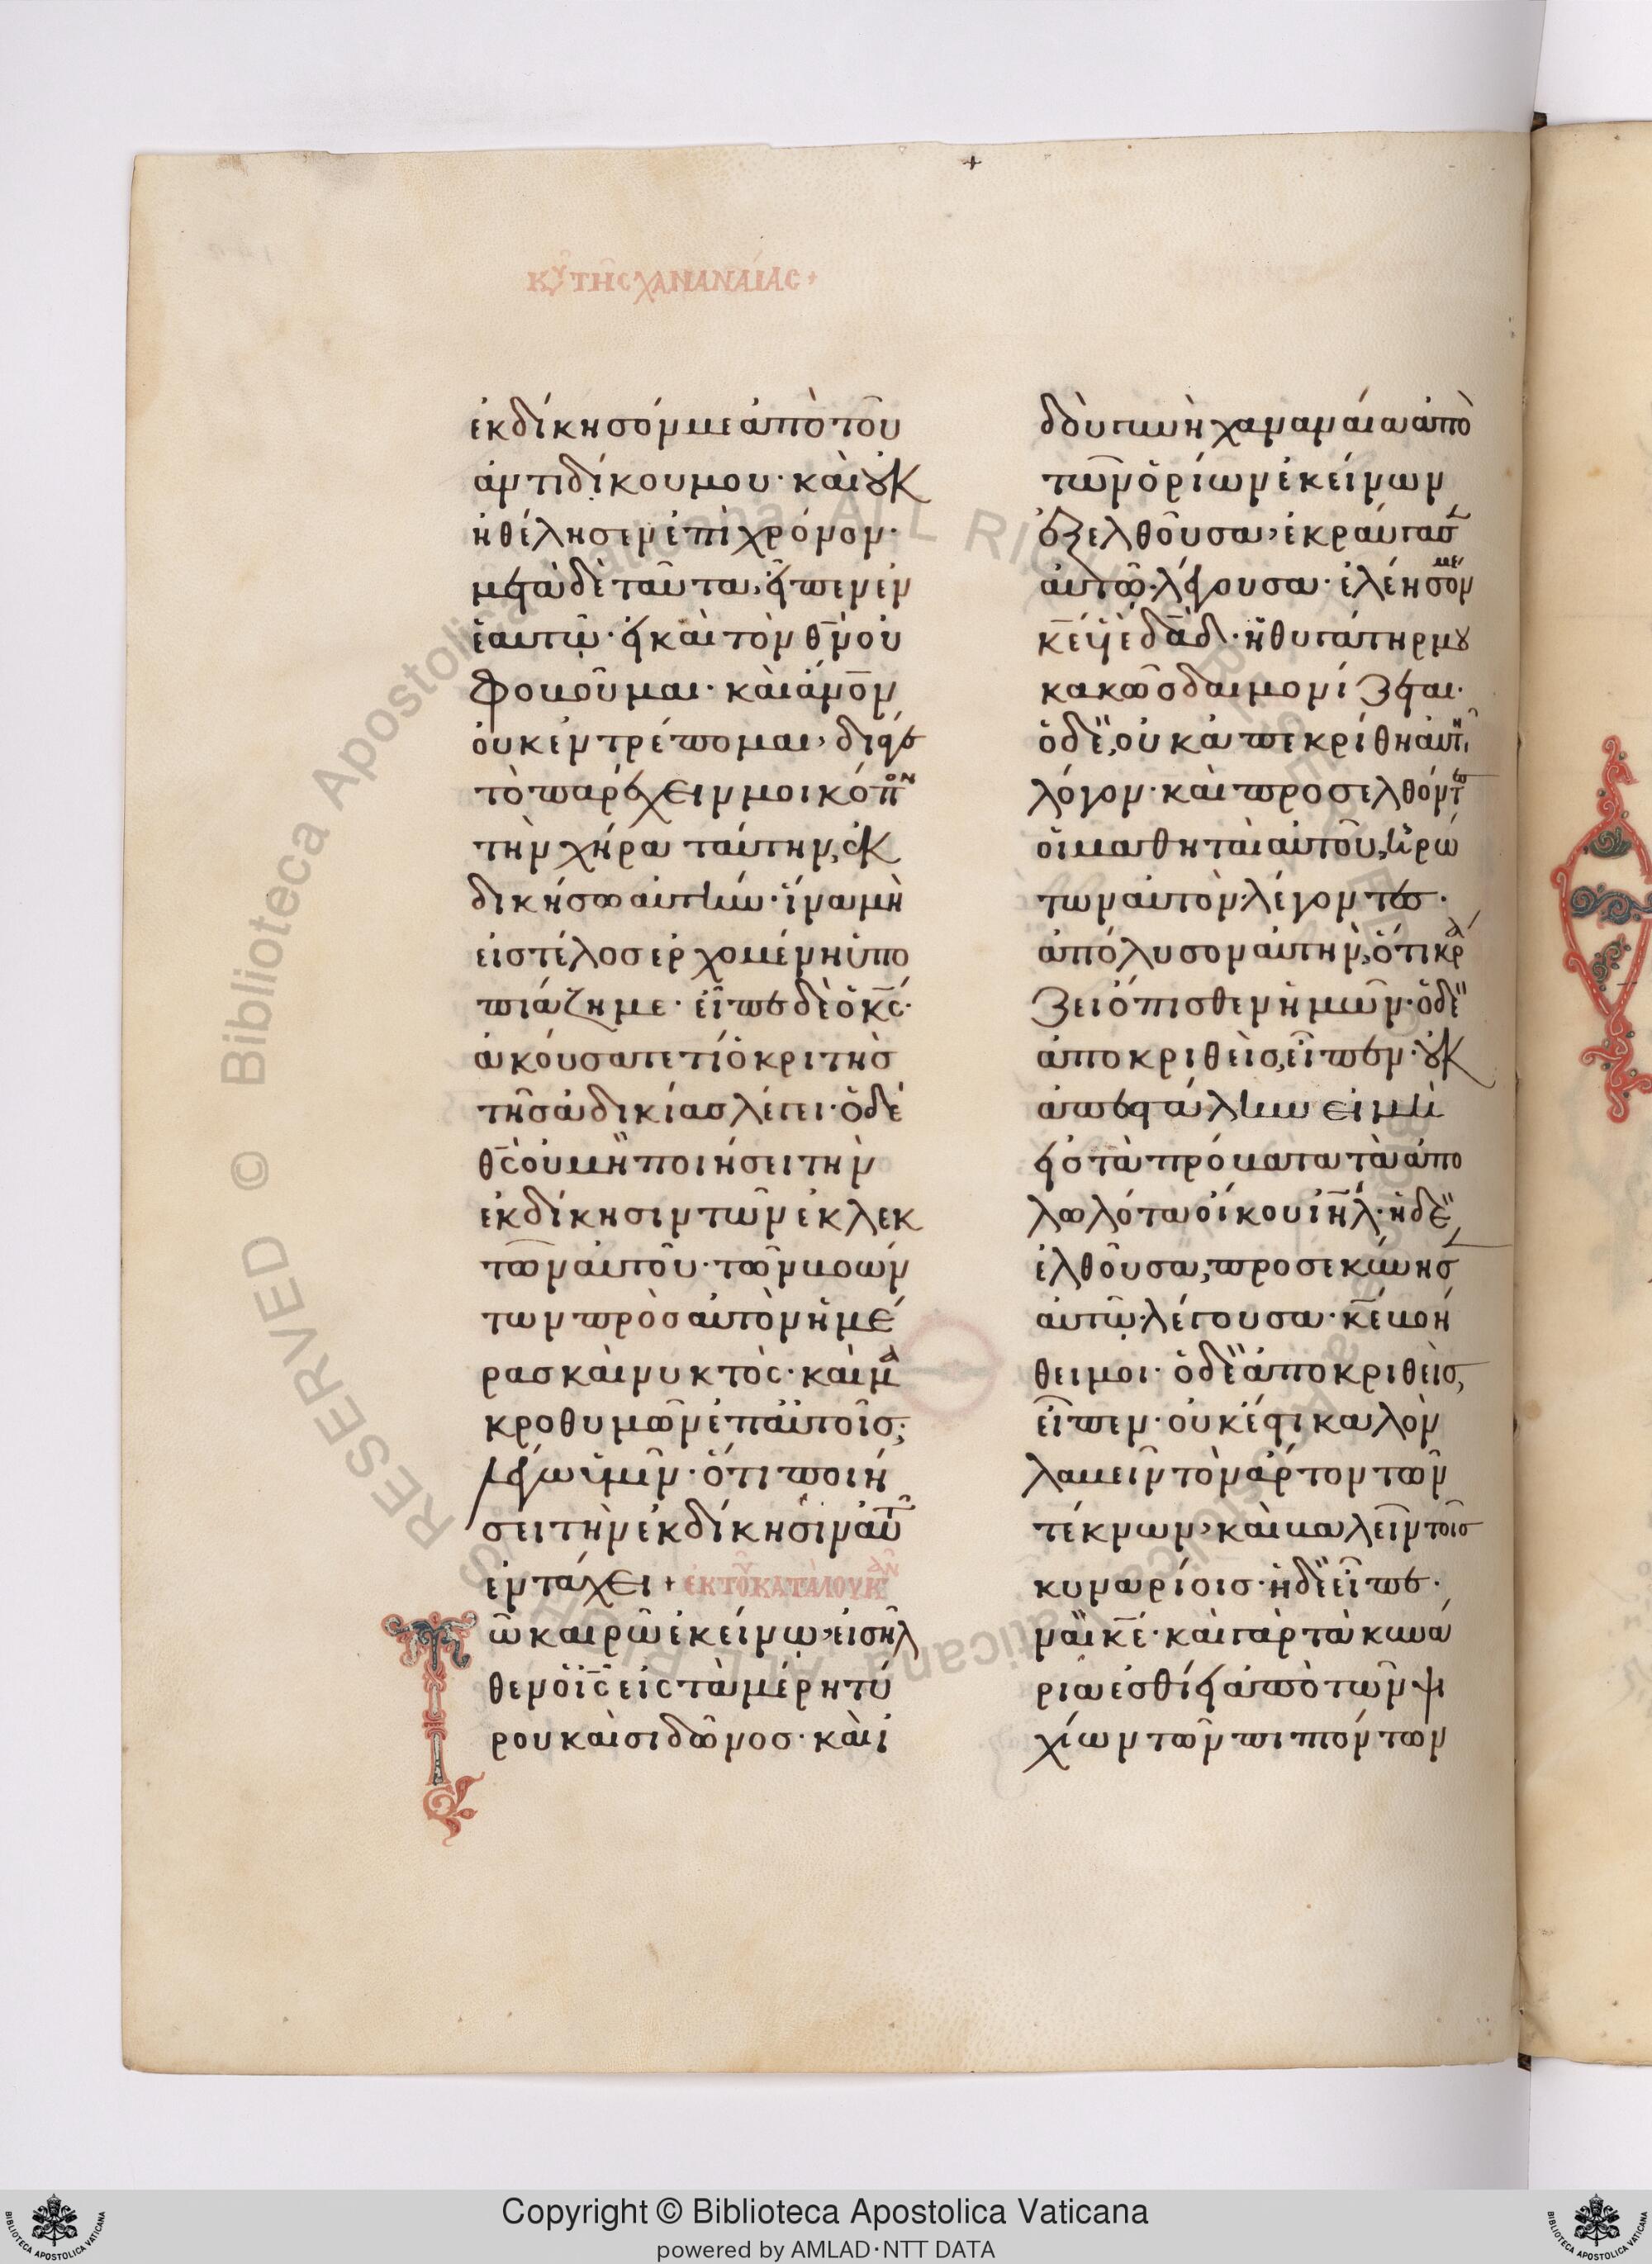 ΚΥ ΤΗΣ ΧΑΝΑΝΑΙΑΣ +
ἐκδίκησόν με ἀπὸ τοῦ
ἀντιδίκου μου· καὶ οὐκ
ἠθέλησεν ἐπὶ χρόνον·
μετὰ δὲ ταῦτα, εἶπεν ἐν
ἑαυτῶ· εἰ καὶ τὸν θν οὐ
φοβοῦμαι· καὶ ἄνον
οὐκ ἐντρέπομαι, διά γε
τὸ παρέχειν μοι κόπον
τὴν χήρα ταύτην, ἐκ
δικήσω αὐτὴν· ἵνα μὴ
εἰς τέλος ἐρχομένη ὑπο
πιάζη με· εἶπε δὲ ὁ κς·
ἀκούσατε τί ὁ κριτὴς
τῆς ἀδικίας λέγει· ὁ δὲ
θς οὐ μὴ ποιήσει τὴν
ἐκδίκησιν τῶν ἐκλεκ
τῶν αὐτοῦ· τῶν βοών
των πρὸς αὐτὸν ἡμέ
ρας καὶ νυκτὸς· καὶ μα
κροθυμῶν ἐπ αὐτοῖς;
λέγω ὑμῖν· ὅτι ποιή
σει τὴν ἐκδίκησιν αὐτῶν
ἐν τάχει + ἐκ τοῦ κατὰ λουκαν
Τῶ καιρῶ ἐκείνω, εἰσῆλ
θεν ὁ ις εἰς τὰ μέρη τύ
ρου καὶ σιδῶνος· καὶ ἰ
δοὺ γυνὴ χαναναία ἀπὸ
τῶν ὁρίων ἐκείνων
ἐξελθοῦσα, ἐκραύγασεν
αὐτῶ· λέγουσα· ἐλέησόν με
κε υἱὲ δαδ· ἡ θυγάτηρ μου
κακῶς δαιμονίζεται·
ὁ δὲ, οὐκ ἀπεκρίθη αὐτῆ
λόγον· καὶ προσελθόντες
οἱ μαθηταὶ αὐτοῦ, ἠρώ
των αὐτὸν· λέγοντες·
ἀπόλυσον αὐτὴν, ὅτι κρά
ζει ὄπισθεν ἡμῶν· ὁ δὲ
ἀποκριθεὶς, εἶπεν· οὐκ
ἀπεστάλην εἰ μὴ
εἰς τὰ πρόβατα τὰ ἀπο
λωλότα οἴκου ιηλ· ἡ δὲ
ἐλθοῦσα, προσεκύνησεν
αὐτῶ· λέγουσα· κε βοή
θει μοι· ὁ δὲ ἀποκριθεὶς,
εἶπεν· οὐκ ἔστι καλὸν
λαβεῖν τὸν ἄρτον τῶν
τέκνων, καὶ βαλεῖν τοῖς
κυναρίοις· ἡ δὲ εἶπε·
ναὶ κε· καὶ γὰρ τὰ κυνά
ρια ἐσθίει ἀπὸ τῶν ψι
χίων τῶν πιπτόντων
© Biblioteca Apostolica Vaticana ALL RIGHTS RESERVED
Copyright © Biblioteca Apostolica Vaticana
powered by AMLAD·NTT DATA
BIBLIOTECA APOSTOLICA VATICANA
BIBLIOTECA APOSTOLICA VATICANA